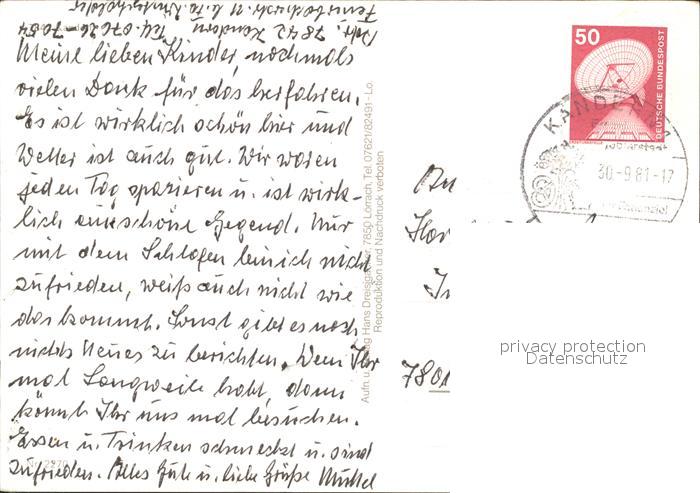 7842 Kandern Tel. 07626-7054
Meine lieben Kinder, nochmals
vielen Dank für das herfahren.
Es ist wirklich schön hier und
Wetter ist auch gut. Wir waren
jeden Tag spazieren u. ist wirk-
lich eine schöne Gegend. Nur
mit dem Schlafen bin ich nicht
zufrieden, weiß auch nicht wie
das kommt. Sonst gibt es noch
nichts Neues zu berichten. Wenn Ihr
mal Langweile habt, dann
könnt Ihr uns mal besuchen.
Essen u. Trinken schmeckt u. sind
zufrieden. Alles Gute u. liebe Grüße
Aufn. u. Verlag Hans Dreisigacker, 7850 Lörrach, Tel. 07621/82491 - Lo.
Reproduktion und Nachdruck verboten
50
DEUTSCHE BUNDESPOST
KANDERN
30.-9.81-17
7801
privacy protection
Datenschutz